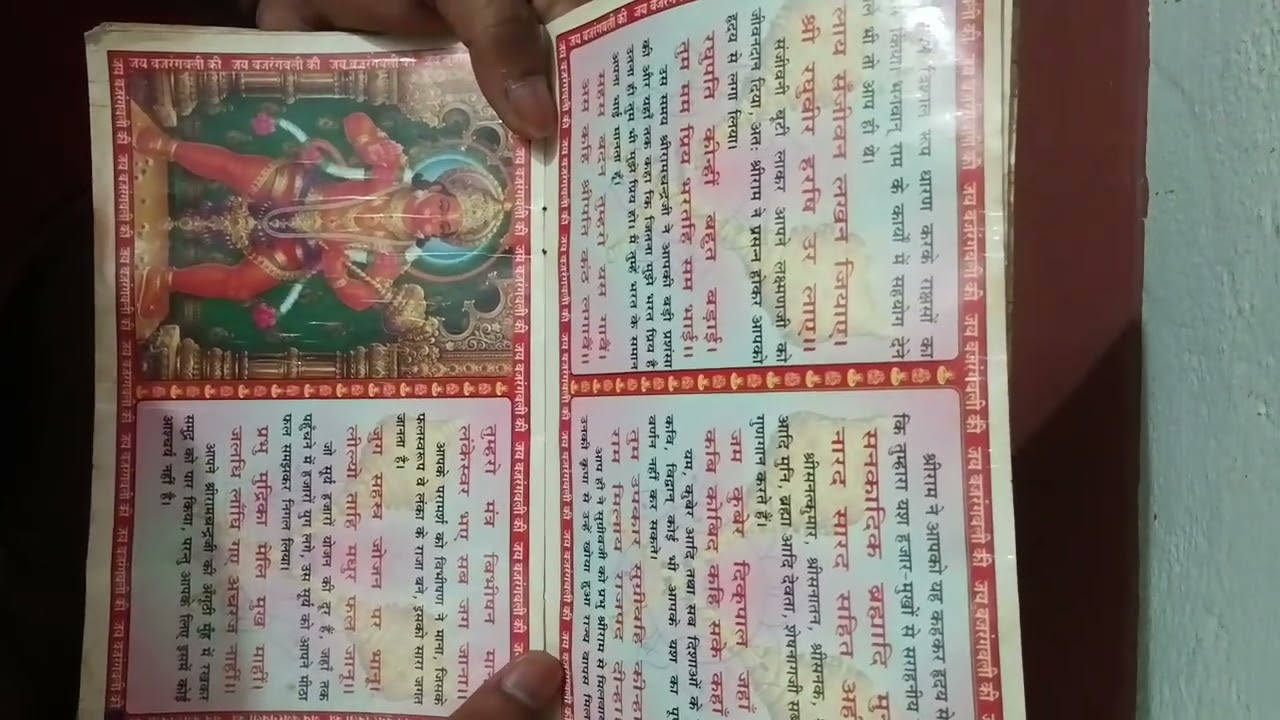 जय बजरंगबली की जय बजरंगबली की जय बजरंगबली की
करके राक्षसों को
भगवान् राम के कार्यों में सहयोग देने
भी तो आप ही थे।
लाय सँजीवन लखन जियाए।
श्री रघुबीर हरषि उर लाए।।
संजीवनी बूटी लाकर आपने लक्ष्मणजी को
जीवनदान दिया, अतः श्रीराम ने प्रसन्न होकर आपको
हृदय से लगा लिया।
रघुपति कीन्हीं बहुत बड़ाई।
तुम मम प्रिय भरतहि सम भाई।।
उस समय श्रीरामचन्द्रजी ने आपकी बड़ी प्रशंसा
की और यहाँ तक कहा कि जितना मुझे भरत प्रिय है
उतना ही तुम भी मुझे प्रिय हो। मैं तुम्हें भरत के समान
अपना भाई मानता हूँ।
सहस बदन तुम्हरो यस गावैं।
अस कहि श्रीपति कंठ लगावैं।।
श्रीराम ने आपको यह कहकर हृदय से
कि तुम्हारा यश हजार-मुखों से सराहनीय
सनकादिक ब्रह्मादि
नारद सारद सहित
श्रीसनत्कुमार, श्रीसनातन, श्रीसनक,
आदि मुनि, ब्रह्मा आदि देवता, शेषनागजी सब
गुणगान करते हैं।
जम कुबेर दिक्पाल जहाँ
कबि कोबिद कहि सके कहाँ
यम, कुबेर आदि तथा सब दिशाओं के
कवि, विद्वान् कोई भी आपके यश का
वर्णन नहीं कर सकते।
तुम उपकार सुग्रीवहिं कीन्हा
राम मिलाय राजपद दीन्हा
आप ही ने सुग्रीवजी को प्रभु श्रीराम से मिलवाया
उनकी कृपा से उन्हें खोया हुआ राज्य वापस मिल
तुम्हरो मंत्र बिभीषन माना
लंकेस्वर भए सब जग जाना।।
आपके परामर्श को विभीषण ने माना, जिसके
फलस्वरूप वे लंका के राजा बने, इसको सारा जगत
जानता है।
जुग सहस्त्र जोजन पर भानू।
लील्यो ताहि मधुर फल जानू।।
जो सूर्य हजारों योजन की दूर है, जहाँ तक
पहुँचने में हजारों युग लगें, उस सूर्य को आपने मीठा
फल समझकर निगल लिया।
प्रभु मुद्रिका मेलि मुख माहीं।
जलधि लाँघि गए अचरज नाहीं।।
आपने श्रीरामचन्द्रजी की अँगूठी मुँह में रखकर
समुद्र को पार किया, परन्तु आपके लिए इसमें कोई
आश्चर्य नहीं है।